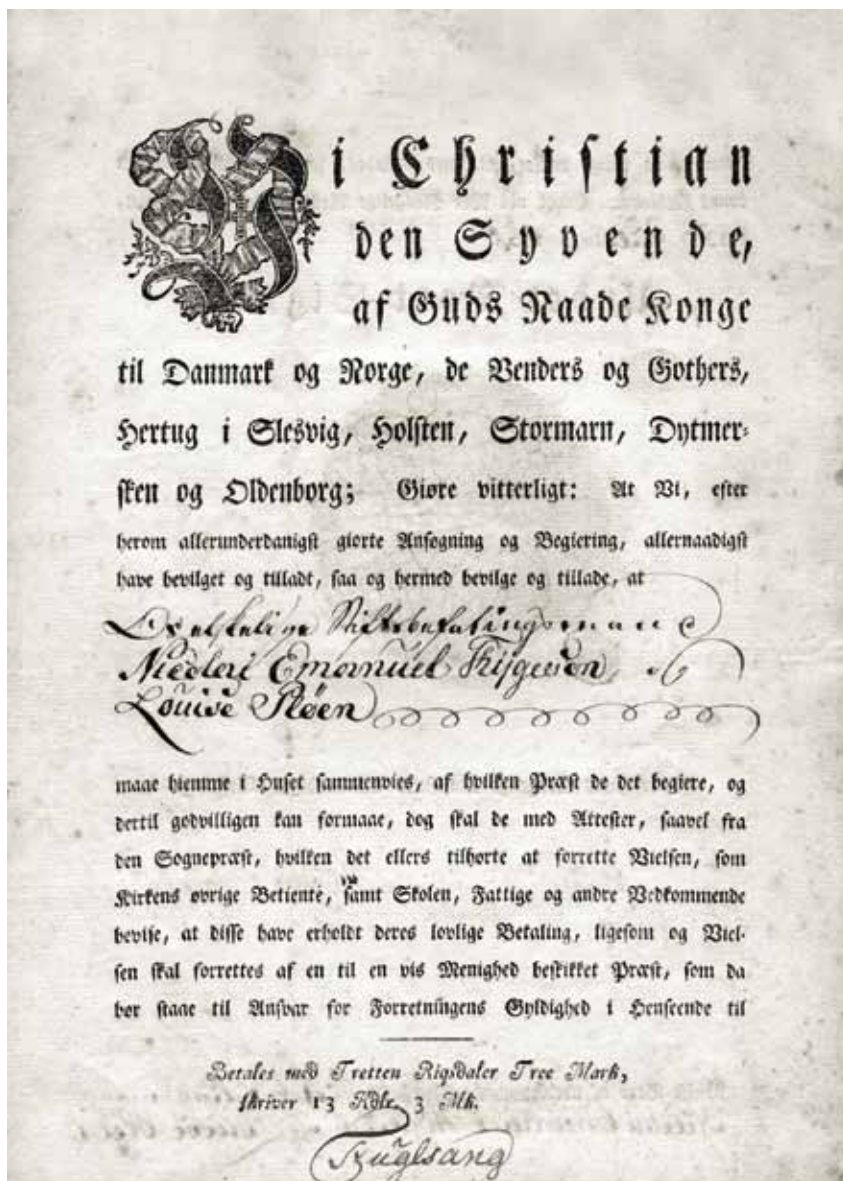 Vi Christian
den Syvende,
af Guds Naade Konge
til Danmark og Norge, de Venders og Gothers,
Hertug i Slesvig, Holsten, Stormarn, Dytmer-
sken og Oldenborg; Giøre vitterligt: At Vi, efter
herom allerunderdanigst giorte Ansøgning og Begiering, allernaadigst
have bevilget og tilladt, saa og hermed bevilge og tillade, at
Stiftsbefalingsmand
Nicolai Emanuel
Louise Støen
maae hiemme i Huset sammenvies, af hvilken Præst de det begiere, og
dertil godvilligen kan formaae, dog skal de med Attester, saavel fra
den Sognepræst, hvilken det ellers tilhørte at forrette Vielsen, som
Kirkens øvrige Betiente, samt Skolen, Fattige og andre Vedkommende
bevise, at disse have erholdt deres lovlige Betaling, ligesom og Viel-
sen skal forrettes af en til en vis Menighed beskikket Præst, som da
bør staae til Ansvar for Forretningens Gyldighed i Henseende til
Betales med Tretten Rigsdaler Tree Mark,
skriver 13 Rdlr. 3 Mk.
Fuglsang